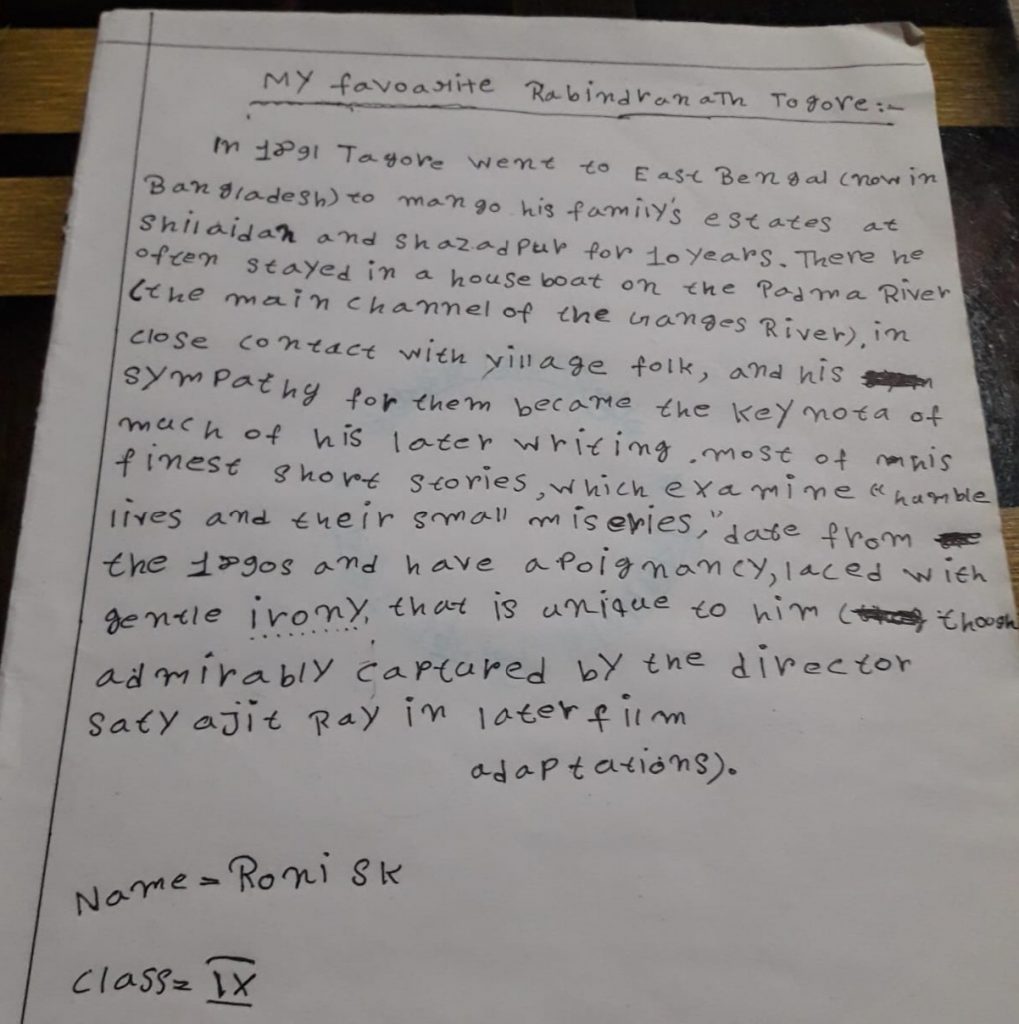 MY favoarite Rabindranath Togore:-
In 1891 Tagore went to East Bengal (now in
Bangladesh) to mango his family's estates at
Shilaidah and Shazadpur for 10 years. There he
often stayed in a houseboat on the Padma River
(the main channel of the Ganges River), in
close contact with village folk, and his
sympathy for them became the keynota of
much of his later writing. most of his
finest short stories, which examine "humble
lives and their small miseries," date from
the 1890s and have a poignancy, laced with
gentle irony, that is unique to him (though
admirably captured by the director
Satyajit Ray in later film
adaptations).
Name = Roni SK
Class = IX